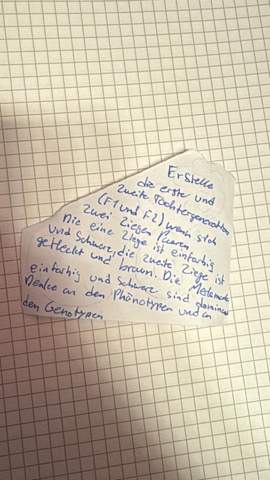 Erstelle
die erste und
zweite Tochtergeneration
(F1 und F2) wenn sich
zwei Ziegen paaren
Die eine Ziege ist einfarbig
und schwarz, die zweite Ziege ist
gefleckt und braun. Die Merkmale
einfarbig und schwarz sind dominant
Denke an den Phänotypen und an
den Genotypen